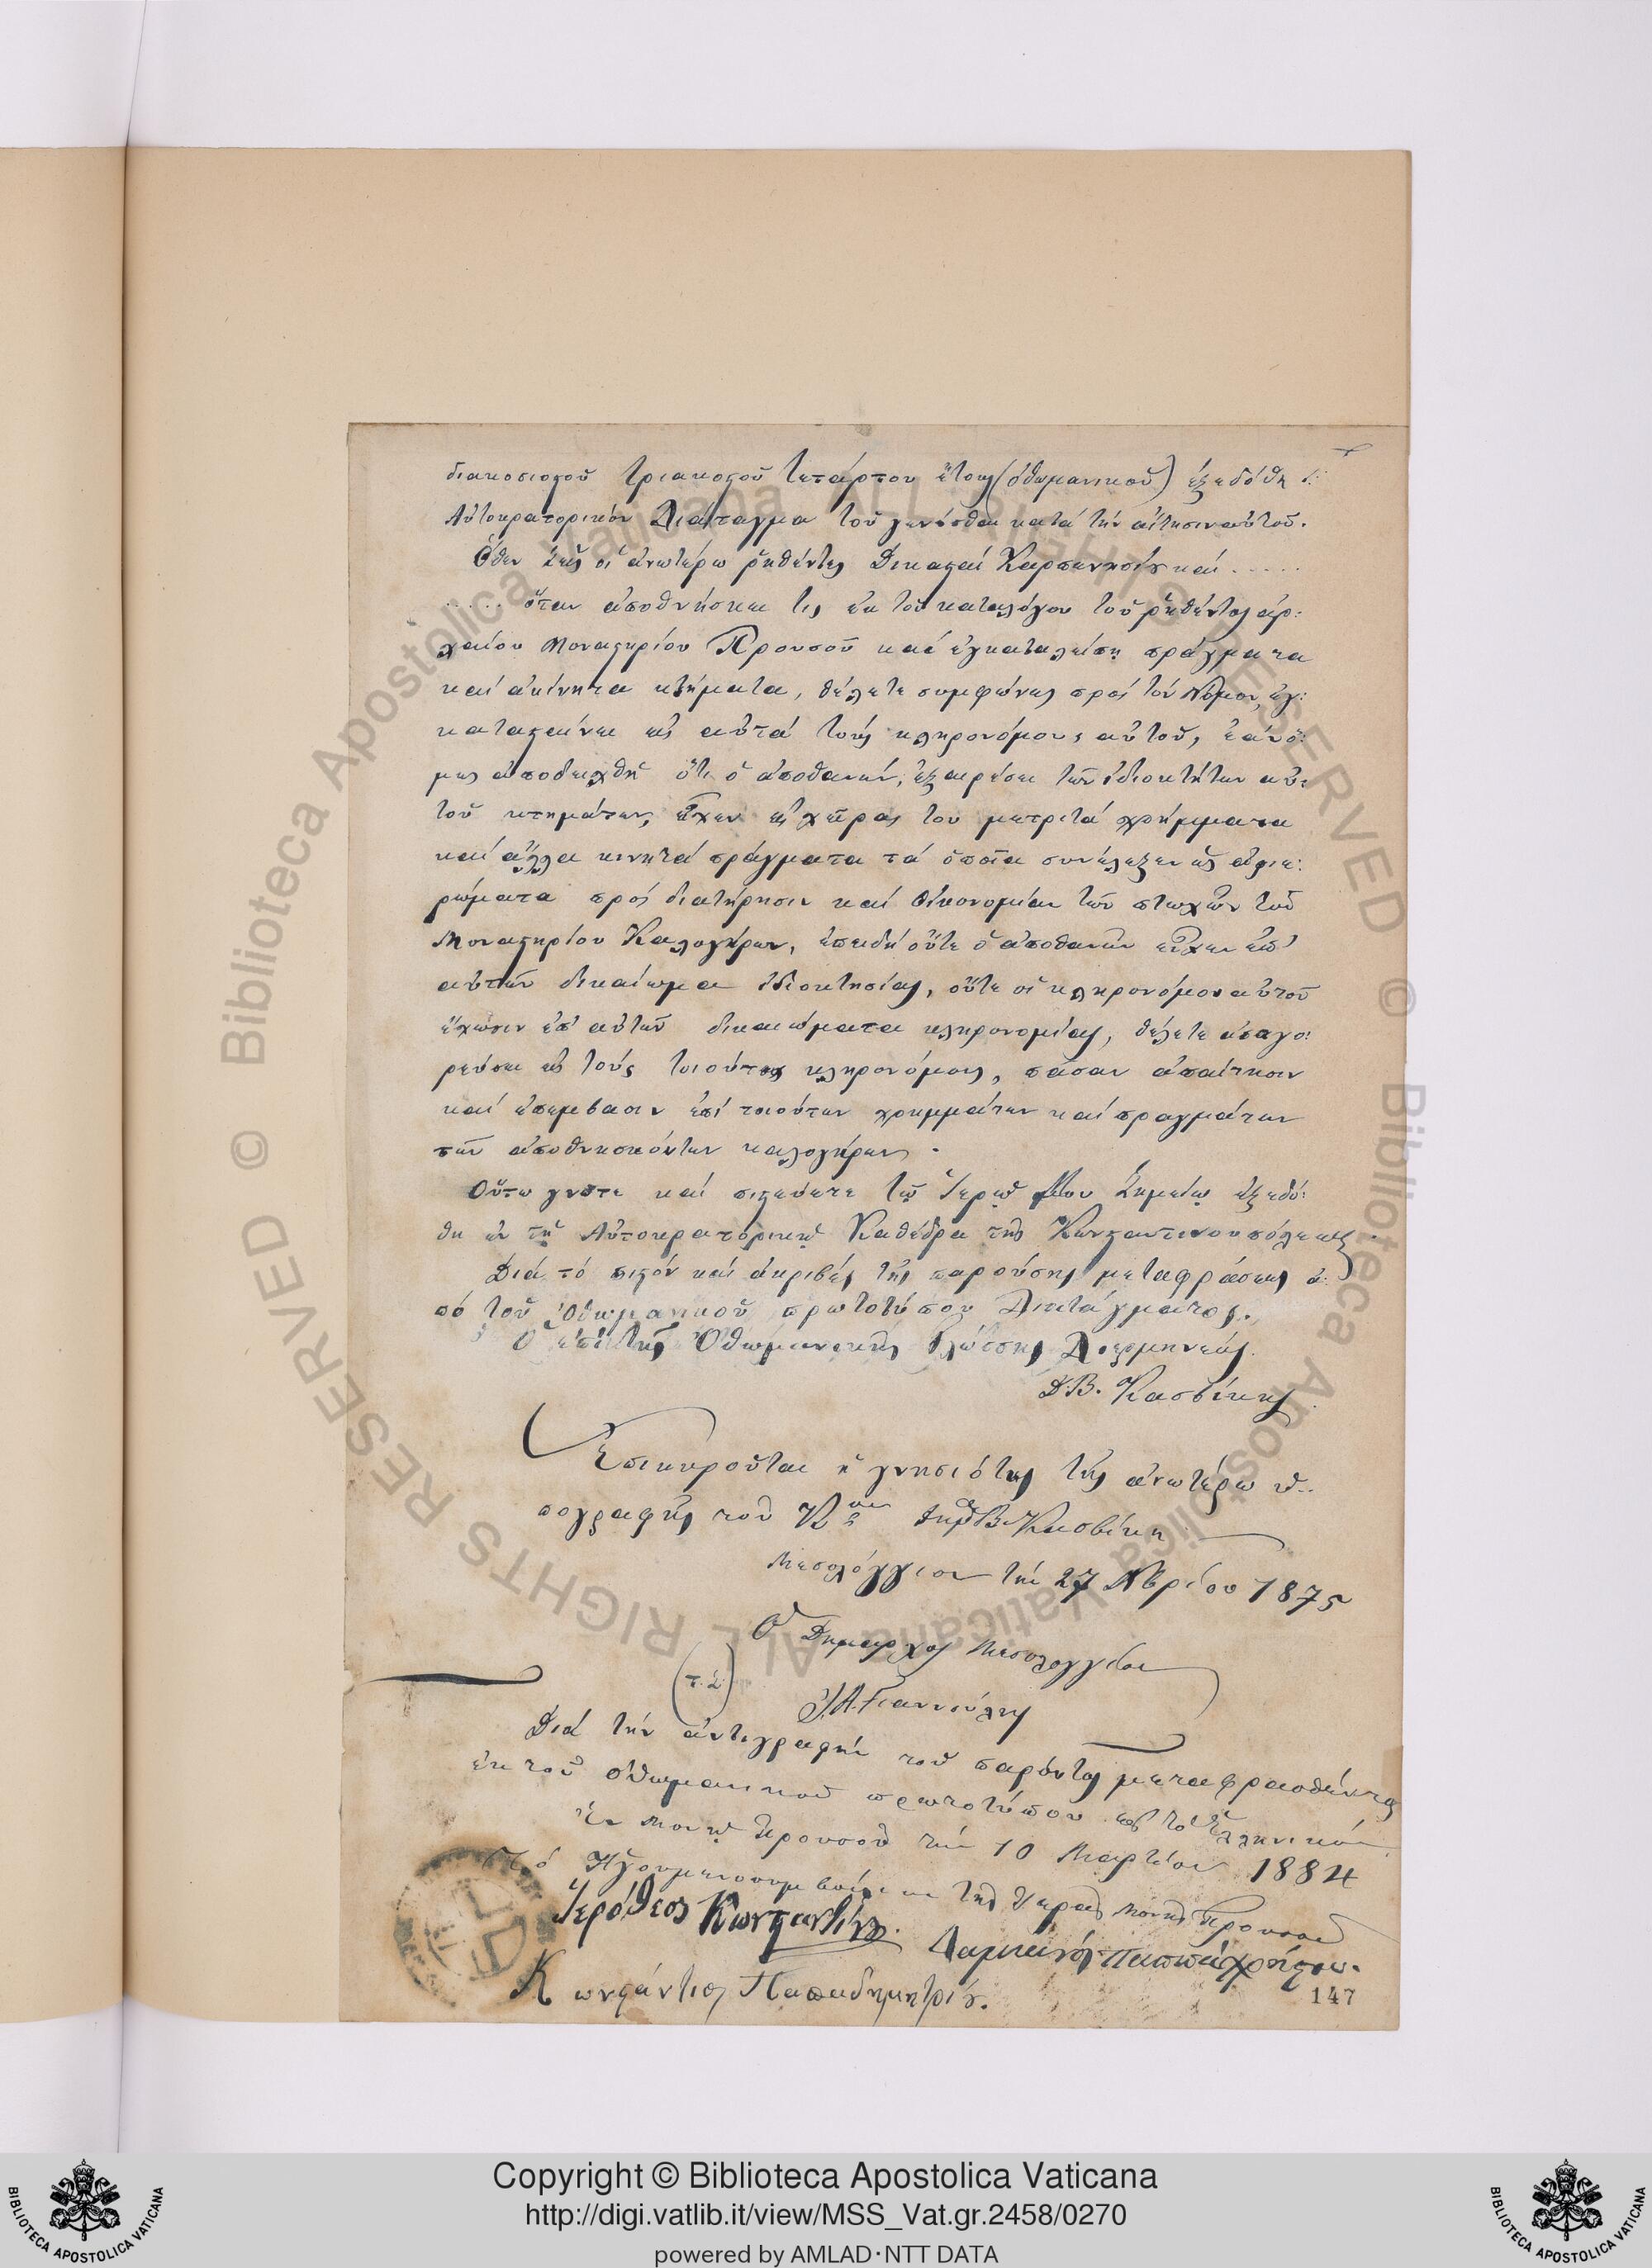 διακοσιοστοῦ τριακοστοῦ τετάρτου ἔτους (ὀθωμανικοῦ) ἐξεδόθη
Αὐτοκρατορικόν Διάταγμα τοῦ γενέσθαι κατά τήν αἴτησιν αὐτοῦ.
Ὅθεν Σεῖς οἱ ἀνωτέρω ῥηθέντες Δικασταί Καρπενησίου καί .....
..... ὅταν ἀποθνήσκει τις ἐκ τοῦ καταλόγου τοῦ ῥηθέντος ἀρ:
χαίου Μοναστηρίου Προυσοῦ καί ἐγκαταλείπῃ πράγματα
καί ἀκίνητα κτήματα, θέλετε συμφώνως πρός τόν Νόμον, ἐγ:
κατασταίνει εἰς αὐτά τούς κληρονόμους αὐτοῦ, ἐάν ὅ:
μως ἀποδειχθῇ ὅτι ὁ ἀποθανών, ἐξαιρέσει τῶν ἰδιοκτήτων αὐ:
τοῦ κτημάτων, εἶχεν εἰς χεῖρας του μετρητά χρήμματα
καί ἄλλα κινητά πράγματα τά ὁποῖα συνέλεξεν ὡς ἀφιε:
ρώματα πρός διατήρησιν καί οἰκονομίαν τῶν πτωχῶν τοῦ
Μοναστηρίου Καλογήρων, ἐπειδή οὔτε ὁ ἀποθανών εἶχεν ἐπ'
αὐτῶν δικαίωμα ἰδιοκτησίας, οὔτε οἱ κληρονόμοι αὐτοῦ
ἔχωσιν ἐπ' αὐτῶν δικαιώματα κληρονομίας, θέλετε ἀπαγο:
ρεύσει εἰς τούς τοιούτους κληρονόμους, πᾶσαν ἀπαίτησιν
καί ἐπέμβασιν ἐπί τοιούτων χρημμάτων καί πραγμάτων
τῶν ἀποθνησκόντων καλογήρων.
Οὕτω γνῶτε καί πιστεύετε τῷ Ἱερῷ Μου Σημείῳ ἐξεδό:
θη ἐν τῇ Αὐτοκρατορικῇ Καθέδρᾳ τῆς Κωνσταντινουπόλεως
Διά τό πιστόν καί ἀκριβές τῆς παρούσης μεταφράσεως ἀ:
πό τοῦ Ὀθωμανικοῦ πρωτοτύπου Διατάγματος.
Ὁ ἐπί τῆς Ὀθωμανικῆς Γλώσσης Διερμηνεύς.
Δ.Β. Κασβίκης
Ἐπικυροῦται ἡ γνησιότης τῆς ἀνωτέρω ὑ..
πογραφῆς τοῦ Κου Δημ Β. Κασβίκη
Μεσολόγγιον τήν 27 Ἀπρίλου 1875
Ὁ Δήμαρχος Μεσολογγίου
(τ.Σ)
Α. Γιαννούλης
Διά τήν ἀντιγραφήν τοῦ παρόντος μεταφρασθέντος
ἐκ τοῦ ὀθωμανικοῦ πρωτοτύπου εἰς τό Ἑλληνικόν
Ἐν Μονῇ Προυσοῦ τήν 10 Μαρτίου 1884
Τό Ἡγουμενοσυμβούλιον τῆς Ἱερᾶς Μονῆς Προυσοῦ
Ἱερόθεος Κωνσταντίνου.
Δαμιανός Παππαχρήστου.
Κωνστάντιος Παπαδημητρίου.
147
Copyright © Biblioteca Apostolica Vaticana
http://digi.vatlib.it/view/MSS_Vat.gr.2458/0270
powered by AMLAD·NTT DATA
BIBLIOTECA APOSTOLICA VATICANA
BIBLIOTECA APOSTOLICA VATICANA
© Biblioteca Apostolica Vaticana ALL RIGHTS RESERVED © Biblioteca Apostolica Vaticana ALL RIGHTS RESERVED